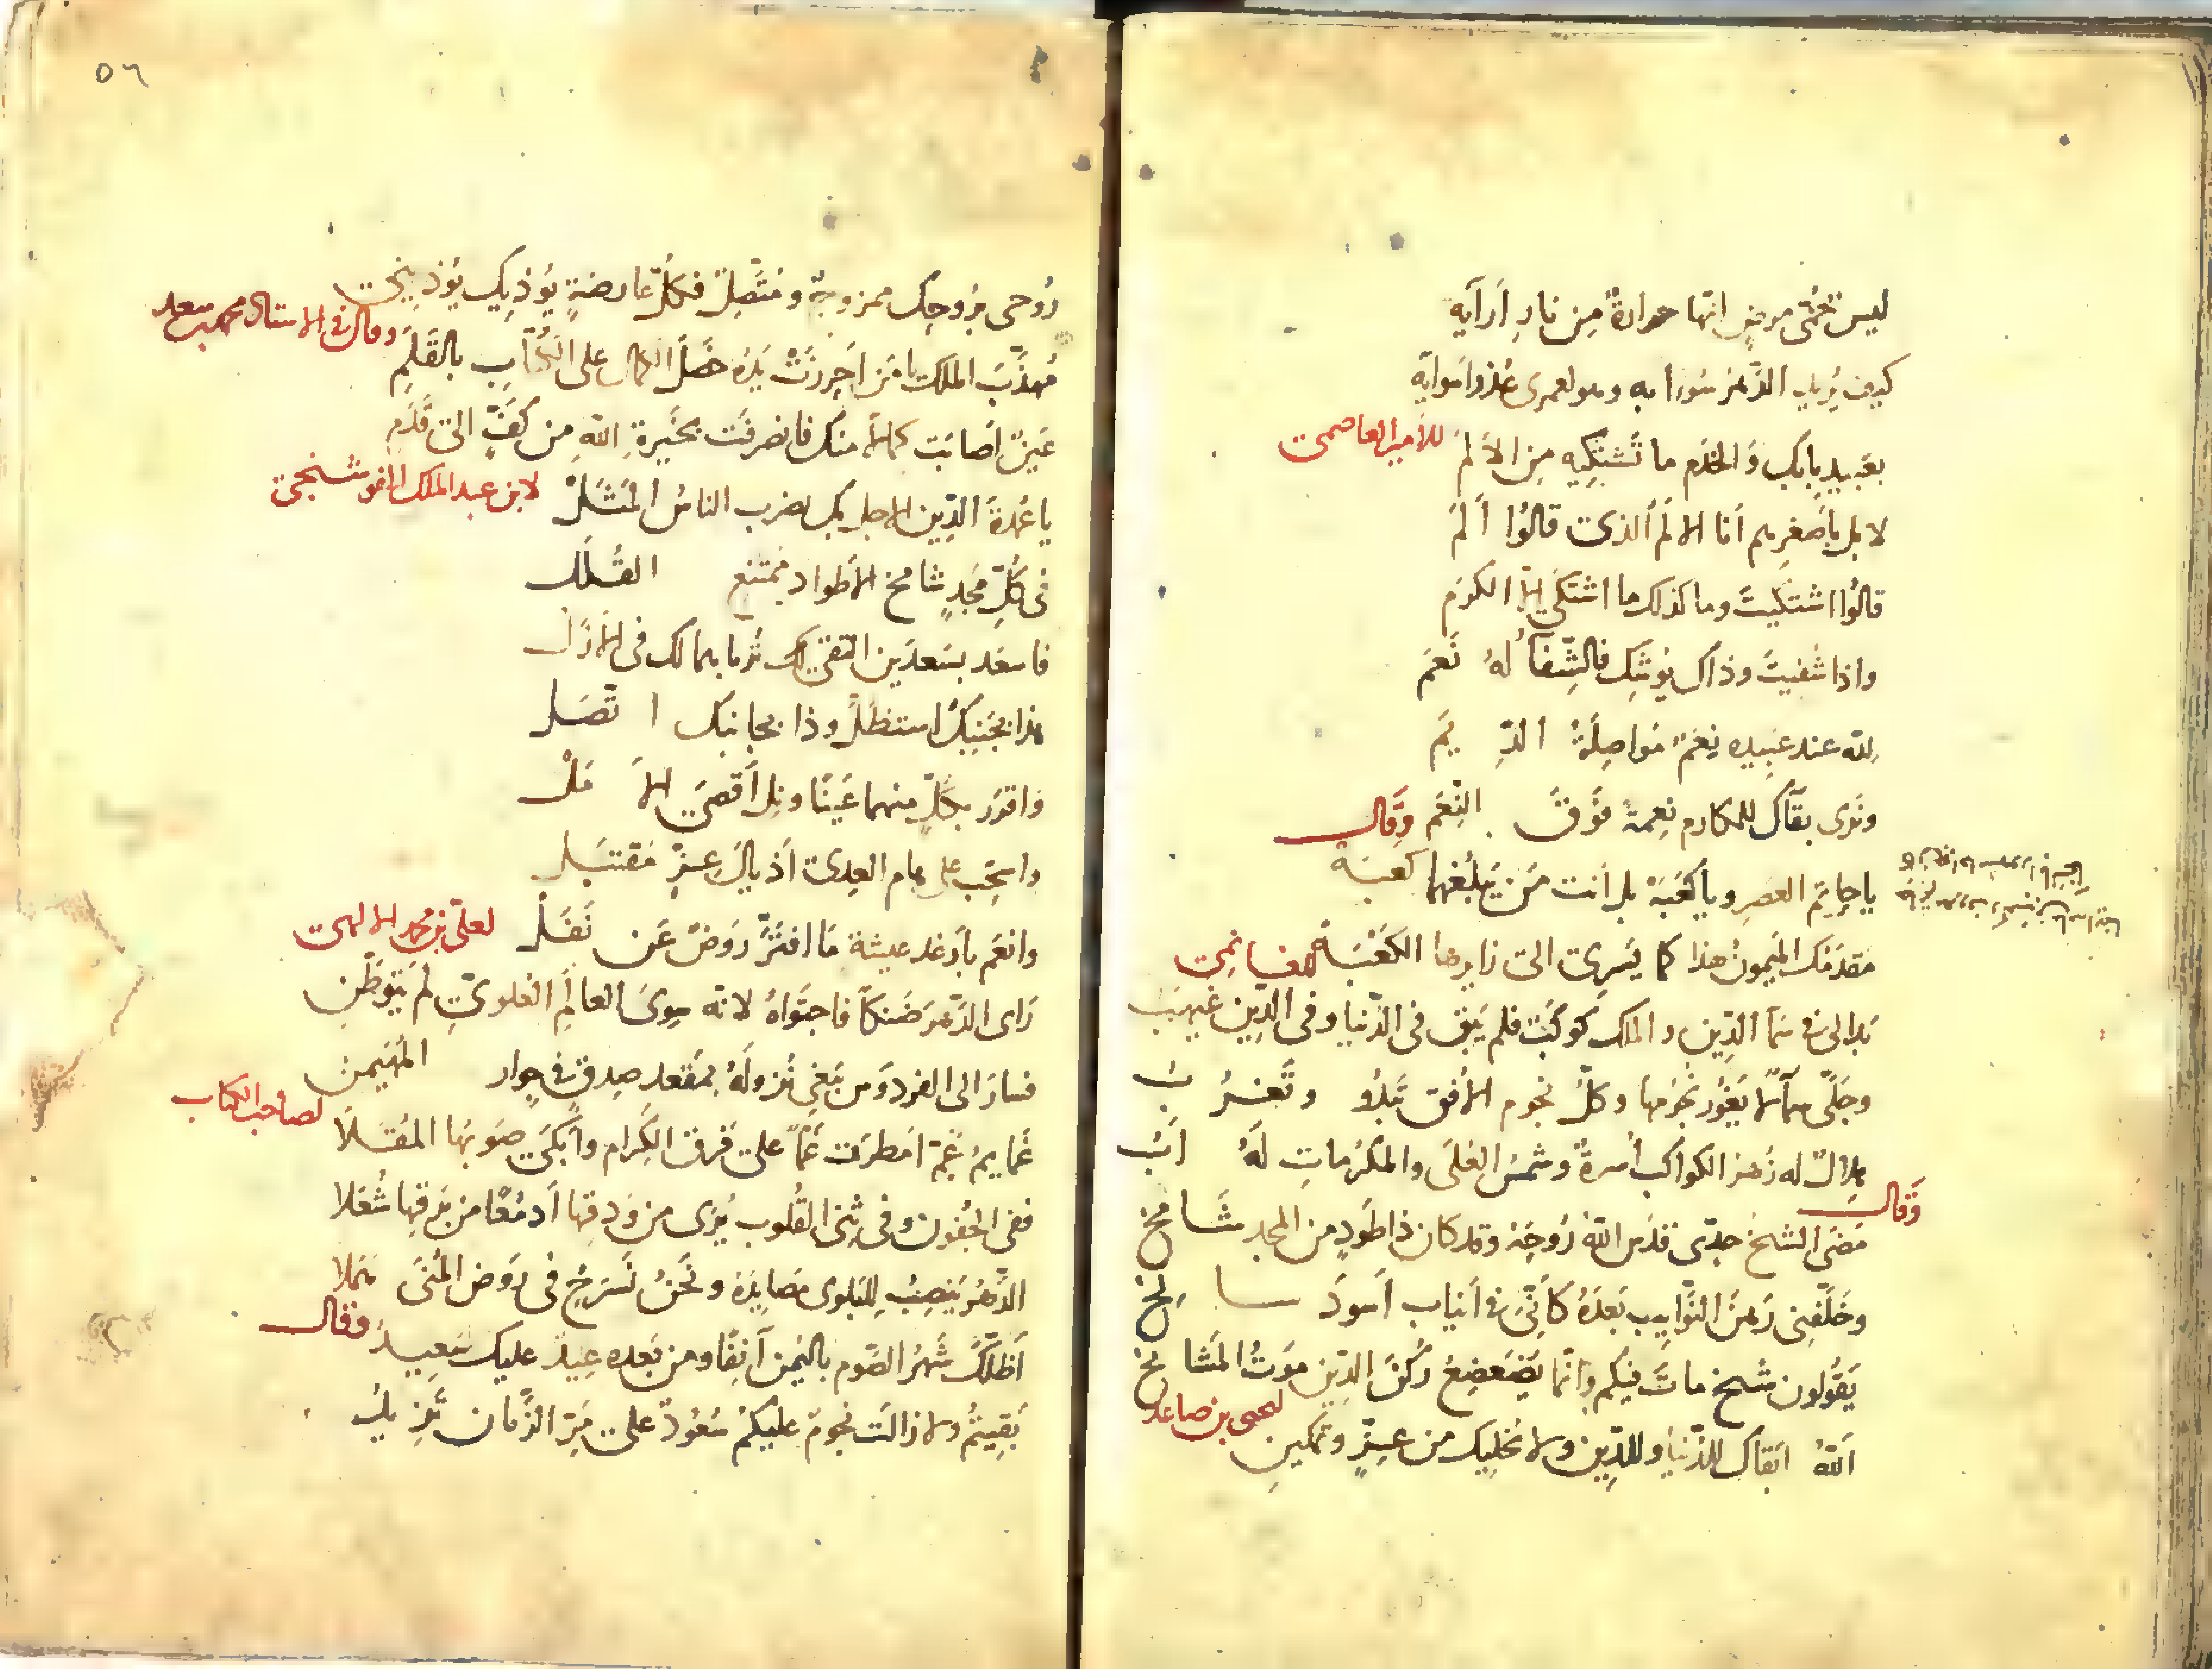 ليس بحُمّى مرضٍ انّها حرارةٌ مِن نارِ اَرآيه
كيف يُريد الدّهر سُوءا به وهو لعمرى عُذو اَسوايه
بعَبيدِ بابك وَالخدَم ما تَشتكِيه مِنَ الاَلمْ للأمير العاصمى
لا بل باَصغرِهم اَنا الالمُ الذى قالُوا اَلمْ
قالُوا اشتكيتَ وما كذلك ما اشتكى الّا الكرَم
واذا شُفيتَ وذاك يُوشك فالشِّفآءُ لهُ نَعَم
لِلّه عند عَبيده نِعَمٌ مُواصِلَةُ الدِّ يَم
ونَرى بقآك للمكارم نِعمةً فَوقَ النِّعَم وقال
يا حايِمَ العصرِ ويا كعْبَهْ بل اَنت مَن يَبلُغهما كعبَهْ
مقدَمُك المَيمونُ هذا كما يَسرِى الى زايِرها الكَعْبَه للغانمى
بَدا لى فى سَمآ الدِّين والملك كوكبٌ فلم يَبق فى الدّنيا وفى الدِّين غيهَب
وجَلّى سمآءً لا يَغُور نجُومُها وكلُّ نجوم الاُفق تَبدُو وتَغرُ بُ
هِلالٌ له زُهر الكواكب اُسرةٌ وشمسُ العُلَى والمَكرُماتِ لَهُ اَبُ
وقال
مَضَى الشيخ جدّى قدَّس اللّهُ رُوحَهُ وقد كان ذا طَودٍ من المجد شَا مِخ
وخَلّفنِى رَهنَ النَّوايِب بَعدَهُ كاَنّى فى اَنياب اَسودَ سا لِخ
يَقولون شيخ ماتَ فيكم وانّما يُضَعضِعُ رُكنَ الدِّين موتُ المشَا يخ
ليحيى بن صاعد
اَللّهُ ابقاك للدّنيا وللدِّين ولا يُخليك من عِزٍّ وتمكينِ
٥٦
رُوحى برُوحِك ممزوجةٌ ومُتَّصِلٌ فكلّ عارضةٍ يُوذِيك يُوذِينى
وقال فى الاستاذ محمد بن سعد
مُهذَّبَ الملك يا مَن اَحرزَتْ يَدُهُ خَصْلَ الكمال على الكُتّابِ بالقَلَمِ
عَينٌ اَصابَت كمالًا منك فانصرفَت بخَيرة اللّهِ مِن كَفٍّ الى قَدَمِ
يا عُمدةَ الدِّين الاجل بكم يضرب الناسُ المَثَلْ لابن عبد الملك الفوشنجى
فى كُلِّ مَجدٍ شامخ الاَطواد مُمتنع القُلَل
فاسعَد بسَعدَين التقى لك قُربا بهما لك فى الازل
هذا بجَنبِك استظلَّ وذا بجانبك ا تَّصَل
وَاقرَر بكلّ منهما عَينًا ونِل اَقصَى الاَ مَلْ
واسحَب على هام العِدى اَذيالَ عِزٍّ مُقتبَل
وانعَم باَرغد عيشة مَا افتَرَّ رَوضٌ عَن نَفَلْ لعلىّ بن محمد الالهى
رَاى الدّهرَ ضَنكاً فاجتَواهُ لانّه سِوَى العالَمِ العُلوىِّ لم يَتَوطَّنِ
فسارَ الى الفردَوس يَبغِى نُزولَهُ بمَقعد صِدقٍ فى جِوار المُهَيمن
لصاحب الكتاب
غمايِمُ غَمّ اَمطرَت غَمّاً على فَرق الكِرام واَبكَى صَوبُها المُقَلا
ففى الجُفون وفى ثِنى القُلوب يُرَى من وَدقِها اَدمُعًا من بَرقها شُعَلا
الدّهرُ يَنصِبُ لِلبَلوى مَصايِدَهُ ونَحنُ نَسرَحُ فى رَوض المُنَى هَمَلا
وقال
اَظَلَّك شَهرُ الصَّوم باليُمن آنِفًا ومن بَعده عِيدٌ عليك سَعِيدُ
بَقِيتُم ولا زالَت نجومٌ عليكمُ سُعُودٌ على مَرِّ الزّمان تَزيدُ